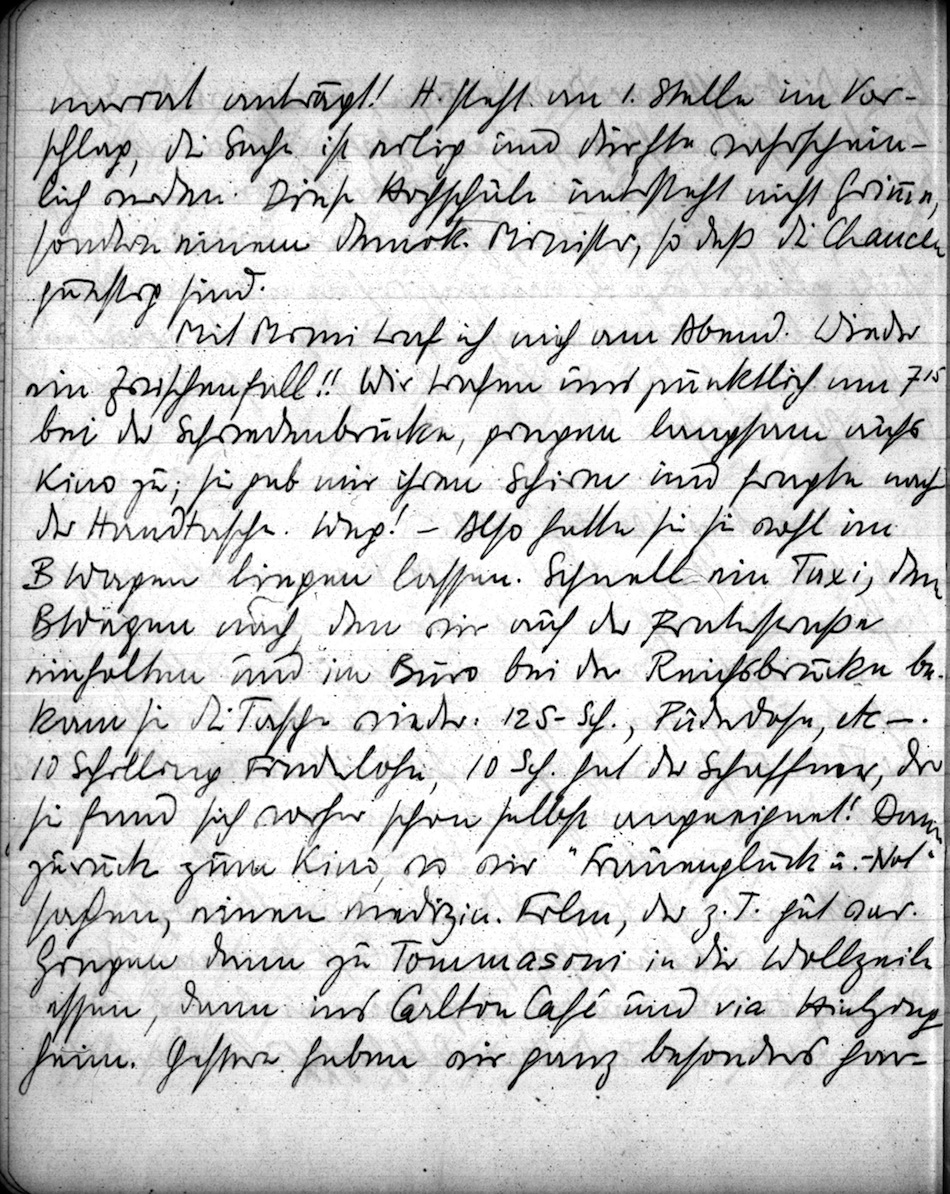 narrat anträgt! H. steht an 1. Stelle im Vor-
schlag, die Sache ist eilig und dürfte wahrschein-
lich werden. Diese Hochschule untersteht nicht Grimme,
sondern einem demok. Minister, so daß die Chancen
günstig sind.
Mit Mimi traf ich mich am Abend. Wieder
ein Zwischenfall!! Wir trafen uns pünktlich um 7 15
bei der Schwedenbrücke, gingen langsam aufs
Kino zu; sie gab mir ihren Schirm und fragte nach
der Handtasche. Weg! – Also hatte sie sie wohl im
B Wagen liegen lassen. Schnell ein Taxi, dem
BWagen nach, den wir auf der Praterstraße
einholten und im Büro bei der Reichsbrücke be-
kam sie die Tasche wieder. 125– Sch., Puderdose, etc –.
10 Schilling Finderlohn, 10 Sch. hat der Schaffner, der
sie fand sich vorher schon selbst angeeignet! Dann
zurück zum Kino, wo wir "Frauenglück u. -Not"
sahen, einen medizin. Film, der z. T. gut war.
Gingen dann zu Tommasoni in die Wollzeile
essen, dann ins Carlton Café und via Hietzing
heim. Gestern haben wir ganz besonders har-